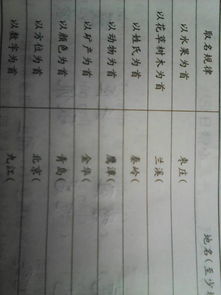 取名规律 地名(至少
以水果为首 枣庄(
以花草树木为首 兰溪(
以姓氏为首 秦岭(
以动物为首 鹰潭(
以矿产为首 金华(
以颜色为首 青岛(
以方位为首 北京(
以数字为首 九江(